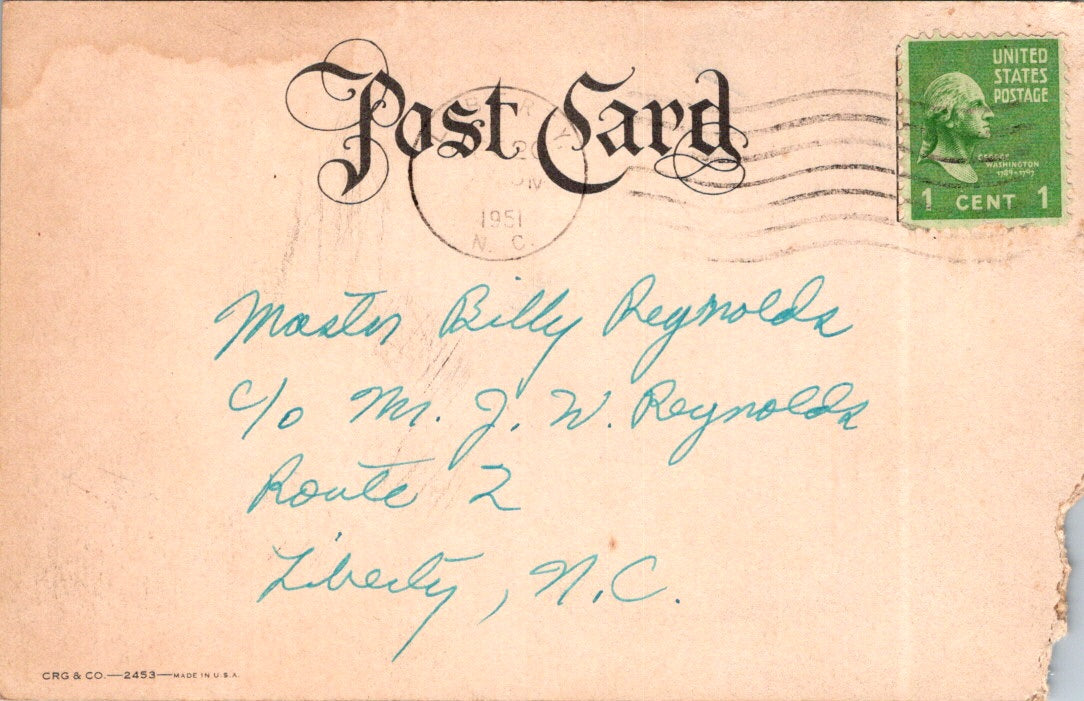 Post Card
UNITED
STATES
POSTAGE
GEORGE
WASHINGTON
1789-1797
1 CENT 1
LIBERTY
20
1951
N. C.
Master Billy Reynolds
c/o Mr. J. W. Reynolds
Route 2
Liberty, N.C.
CRG & CO.—2453—MADE IN U.S.A.